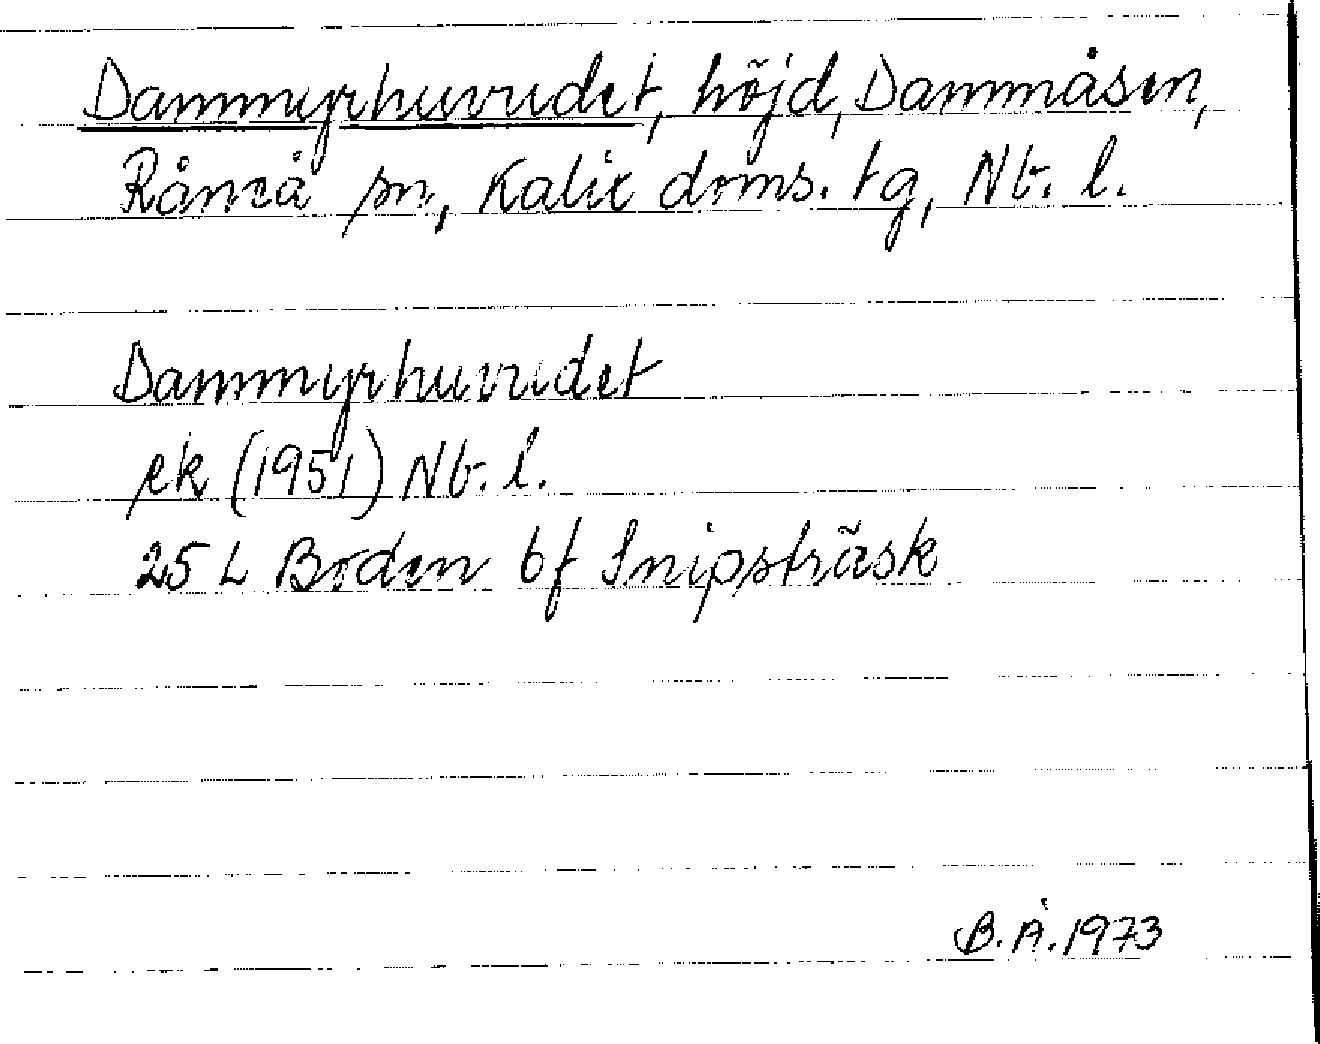 Dammyrhuvudet, höjd, Dammåsen,
Råneå sn, Kalix doms. tg, Nb. l.
Dammyrhuvudet
ek (1951) Nb. l.
25 L Boden 6f Snipsträsk
B. Å. 1973